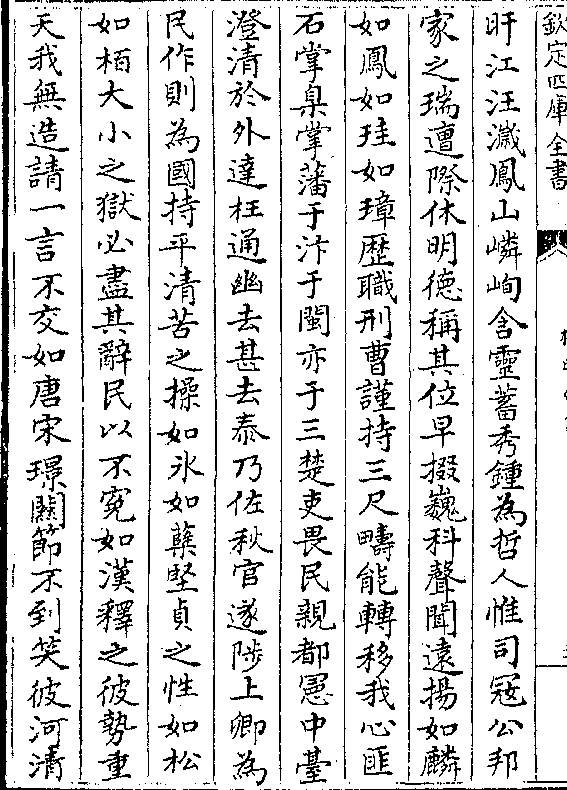 欽定四庫全書
旰江汪濊鳳山嶙峋含靈蓄秀鍾為哲人惟司寇公邦
家之瑞遭際休明德稱其位早掇巍科聲聞遠揚如麟
如鳳如珪如璋歴職刑曹謹持三尺疇能轉移我心匪
石掌臬掌藩于汴于閩亦于三楚吏畏民親都憲中臺
澄清於外達枉通幽去甚去泰乃佐秋官遂陟上卿為
民作則為國持平清苦之操如氷如蘗堅貞之性如松
如栢大小之獄必盡其辭民以不寃如漢釋之彼勢重
天我無造請一言不交如唐宋璟關節不到笑彼河清